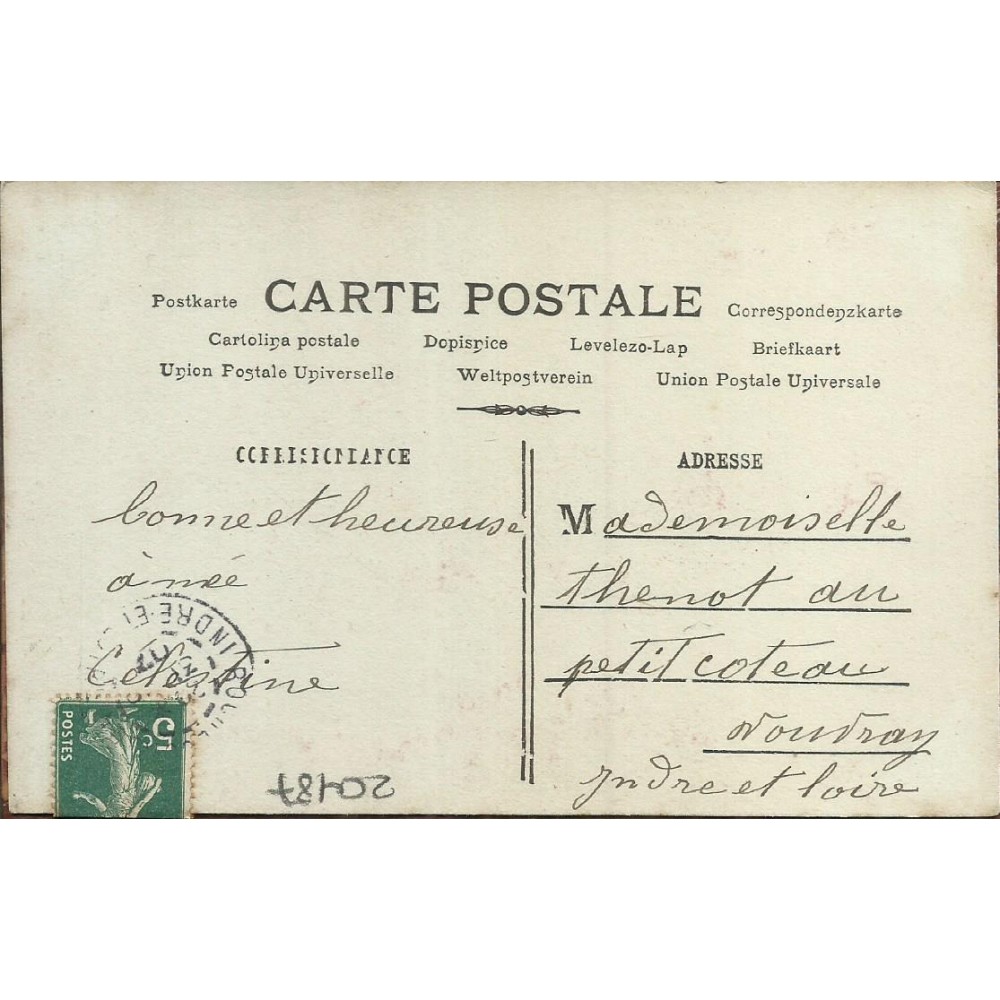 CARTE POSTALE
Postkarte Correspondenzkarte
Cartolina postale Dopisnice Levelezo-Lap Briefkaart
Union Postale Universelle Weltpostverein Union Postale Universale
CORRESPONDANCE
ADRESSE
bonne et heureuse
année
Celestine
Mademoiselle
thenot au
petit coteau
Vouvray
Indre et loire
INDRE ET
5c
POSTES
20487